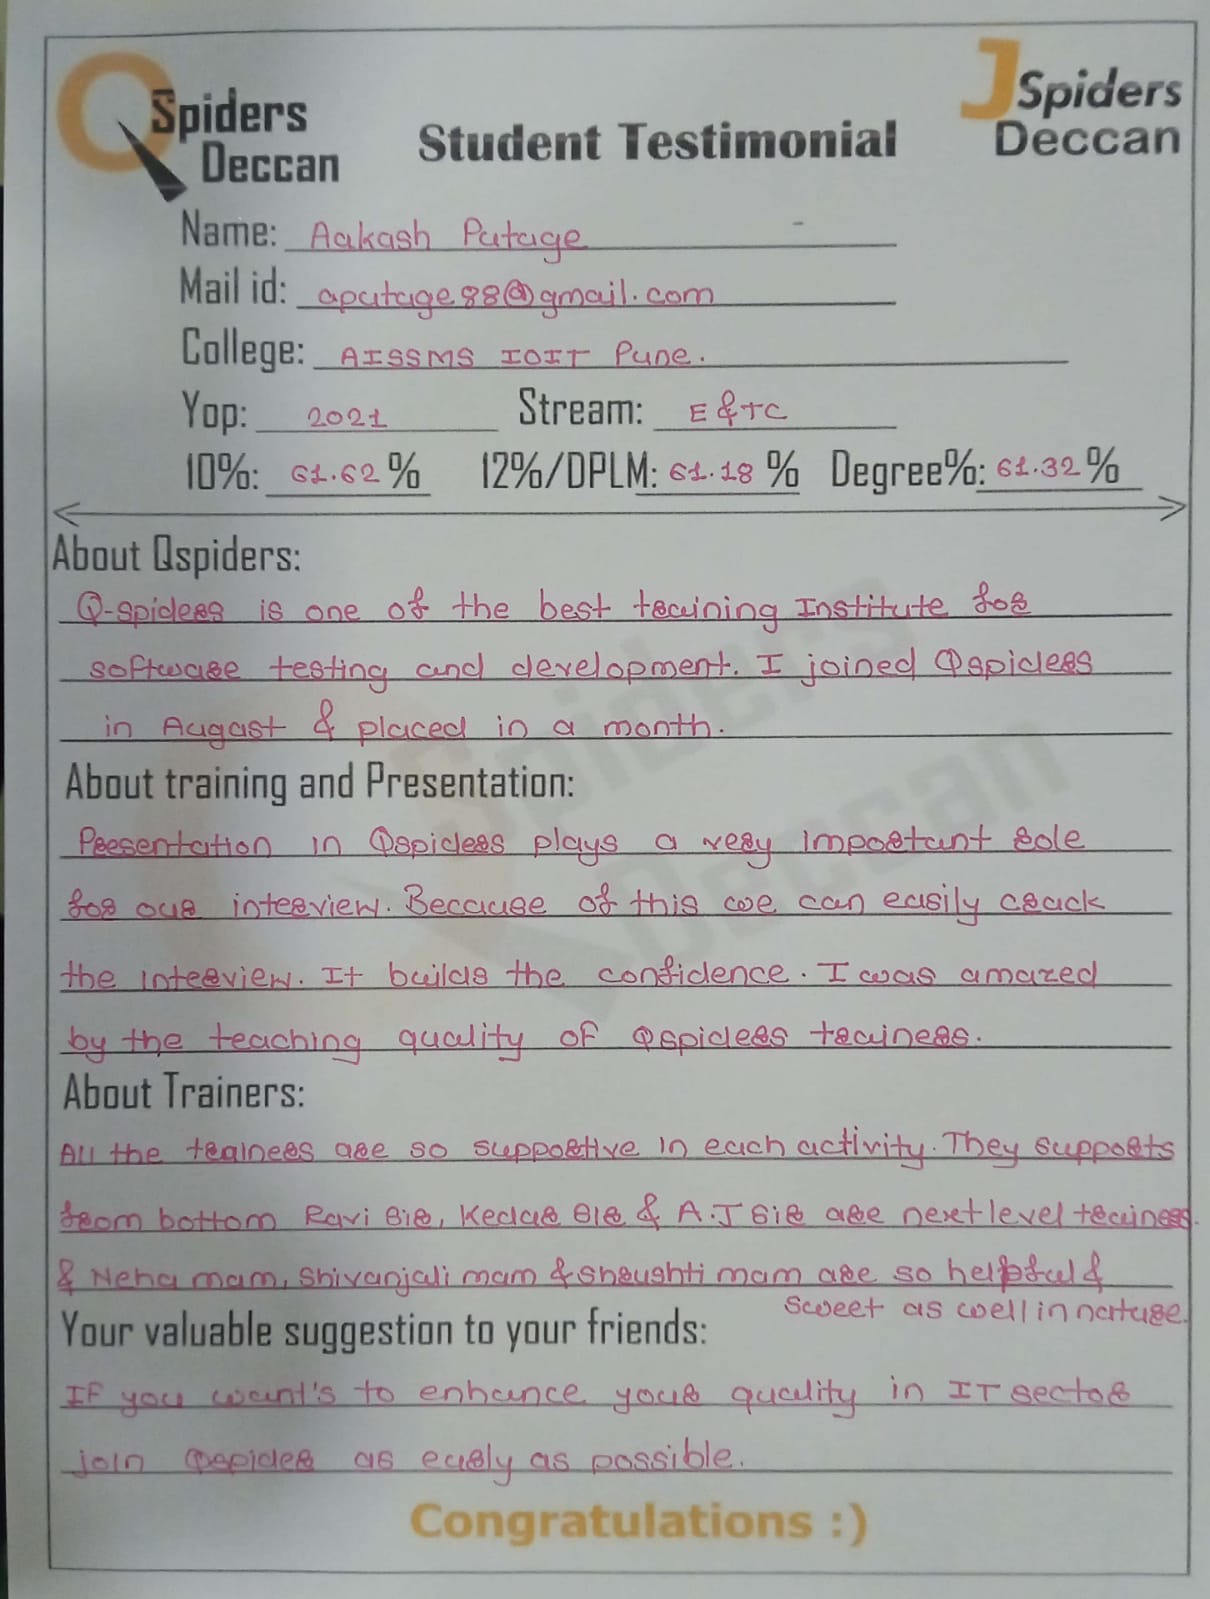 QSpiders Deccan
JSpiders Deccan
Student Testimonial
Name: Aakash Patage
Mail id: apatage88@gmail.com
College: AISSMS IOIT Pune.
Yop: 2021 Stream: E&TC
10%: 61.62% 12%/DPLM: 61.18% Degree%: 61.32%
About Qspiders:
Q-spiders is one of the best training Institute for
software testing and development. I joined Qspiders
in Augast & placed in a month.
About training and Presentation:
Presentation in Qspiders plays a very important role
for our interview. Because of this we can easily crack
the interview. It builds the confidence. I was amazed
by the teaching quality of Qspiders trainers.
About Trainers:
All the trainers are so supportive in each activity. They supports
from bottom Ravi Sir, Kedar Sir & A.J Sir are next level trainers.
& Neha mam, Shivanjali mam & Shrushti mam are so helpful &
sweet as well in nature.
Your valuable suggestion to your friends:
If you want's to enhance your quality in IT sector
join Qspider as early as possible.
Congratulations :)
Spiders
Deccan